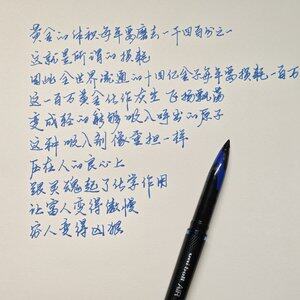 黄金的体积每年要磨去一千四百分之一
这就是所谓的损耗
因此全世界流通的十四亿金子每年要损耗一百万
这一百万黄金化作灰尘飞扬飘荡
变成轻的能够吸入呼出的原子
这种吸入剂像重担一样
压在人的良心上
跟灵魂起了化学作用
让富人变得傲慢
穷人变得凶狠
uni-ball AIR